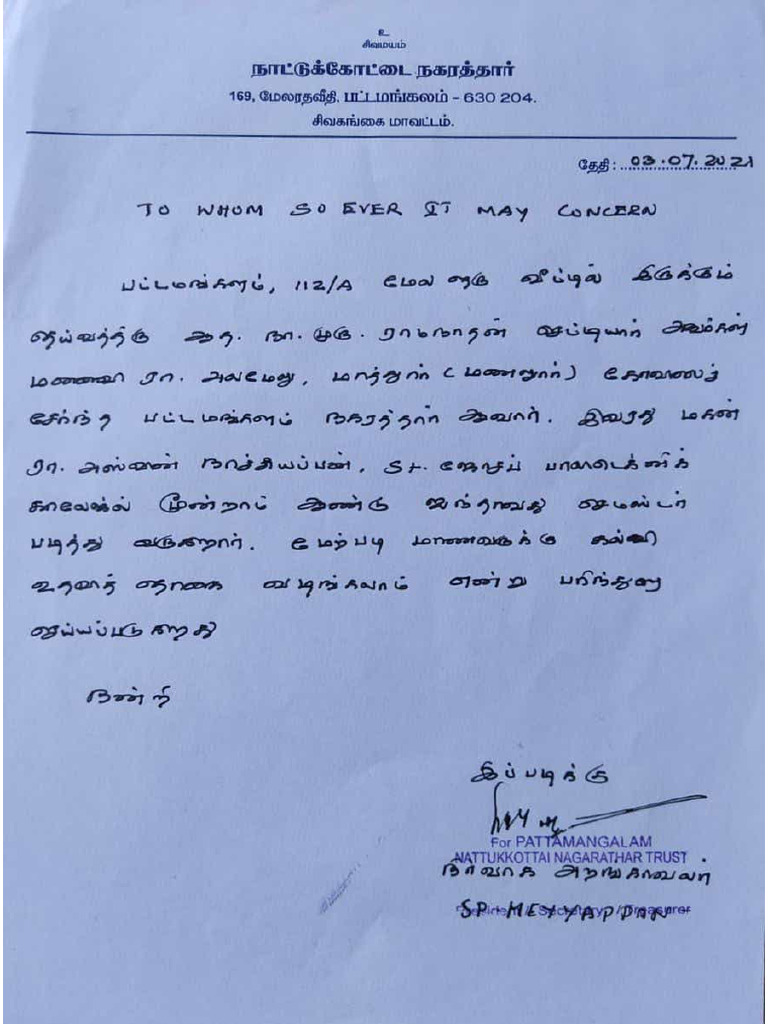 உ
சிவமயம்
நாட்டுக்கோட்டை நகரத்தார்
169, மேலரதவீதி, பட்டமங்கலம் - 630 204.
சிவகங்கை மாவட்டம்.
தேதி: 03.07.2021
TO WHOM SO EVER IT MAY CONCERN
பட்டமங்களம், 112/A மேல தெரு வீட்டில் இருக்கும்
தெய்வத்திரு ஆத. நா. முரு. ராமநாதன் செட்டியார் அவர்கள்
மனைவி ரா. அலமேலு, மாத்தூர் (மணலூர்) கோவிலைச்
சேர்ந்த பட்டமங்களம் நகரத்தார் ஆவார். இவரது மகன்
ரா. அஸ்வின் நாச்சியப்பன், St. ஜோசப் பாலிடெக்னிக்
காலேஜில் மூன்றாம் ஆண்டு ஐந்தாவது செமஸ்டர்
படித்து வருகிறார். மேற்படி மாணவருக்கு கல்வி
உதவித் தொகை வழங்கலாம் என்று பரிந்துரை
செய்யப்படுகிறது
நன்றி
இப்படிக்கு
For PATTAMANGALAM
NATTUKKOTTAI NAGARATHAR TRUST
நிர்வாக அறங்காவலர்
President / Secretary / Treasurer
SP. MEYYAPPAN